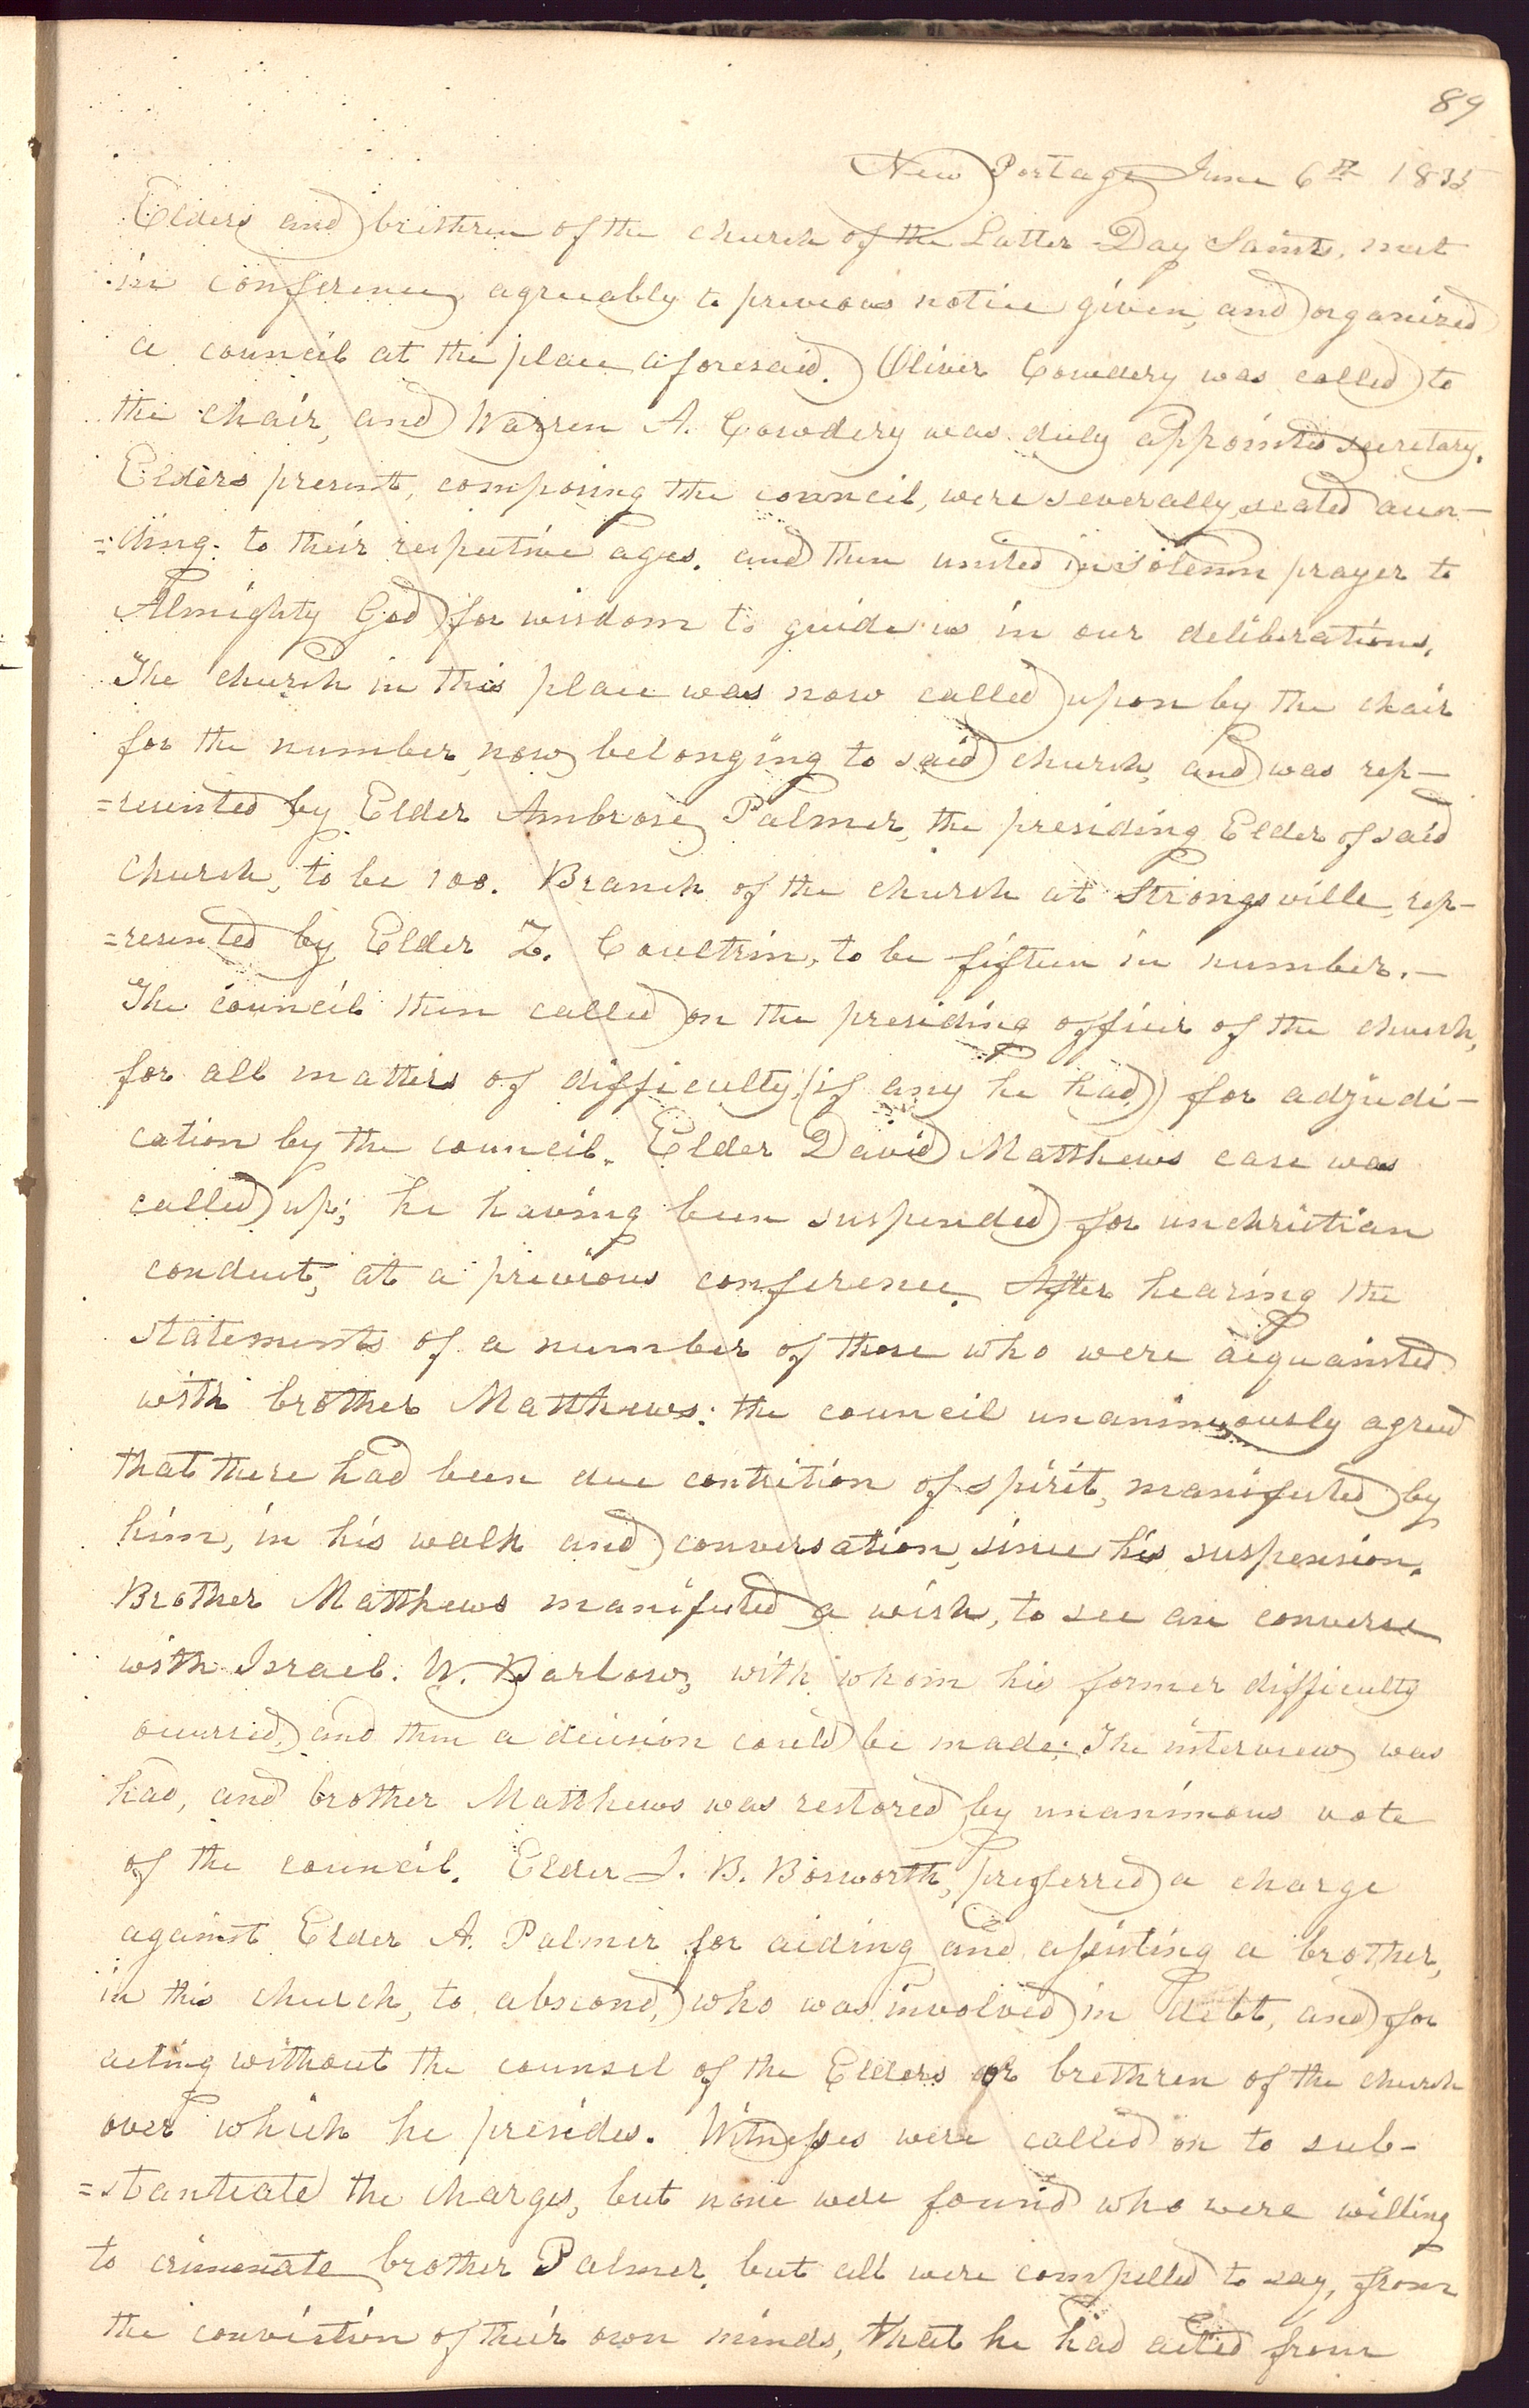 89
New Portage June 6th 1835
Elders and brethren of the church of the Latter Day Saints, met
in conference, agreeably to previous notice given, and organized
a council at the place aforesaid. Oliver Cowdery was called to
the chair, and Warren A. Cowdery was duly appointed secretary.
Elders present, composing the council, were severally seated accor-
=ding to their respective ages, and then united in solemn prayer to
Almighty God for wisdom to guide us in our deliberations.
The church in this place was now called upon by the chair
for the number now belonging to said church, and was rep-
=resented by Elder Ambrose Palmer, the presiding Elder of said
Church, to be 100. Branch of the church at Strongsville, rep-
=resented by Elder Z. Coultrin, to be fifteen in number.-
The council then called on the presiding officer of the church,
for all matters of difficulty, (if any he had) for adjudi-
cation by the council. Elder David Matthews case was
called up; he having been suspended for unchristian
conduct, at a previous conference. After hearing the
statements of a number of those who were acquainted
with brother Matthews: the council unanimously agreed
that there had been due contrition of spirit, manifested by
him, in his walk and conversation, since his suspension.
Brother Matthews manifested a wish, to see an converse
with Israel. W. Barlow, with whom his former difficulty
occurred, and then a decision could be made: The interview was
had, and brother Matthews was restored by unanimous vote
of the council. Elder J. B. Bosworth, preferred a charge
against Elder A. Palmer for aiding and assisting a brother,
in this church, to abscond, who was involved in debt, and for
acting without the counsel of the Elders or brethren of the church
over which he presides. Witnesses were called on to sub-
=stantiate the charges, but none were found who were willing
to crimenate brother Palmer, but all were compelled to say, from
the conviction of their own minds, that he had acted from